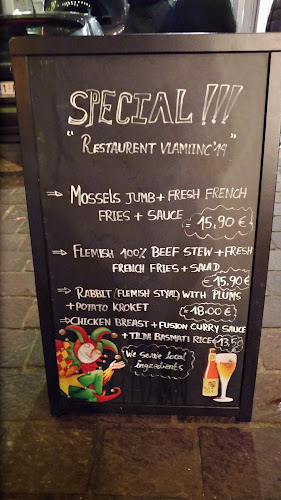 SPECIAL !!!
" RESTAURENT VLAMIINC'19 "
⇒ MOSSELS JUMB + FRESH FRENCH
FRIES + SAUCE
= 15,90 €
⇒ FLEMISH 100% BEEF STEW + FRESH
FRENCH FRIES + SALAD
= 15.90 €
⇒ RABBIT (FLEMISH STYAL) WITH PLUMS
+ POTATO KROKET
= 18.00 €
⇒ CHICKEN BREAST + FUSION CURRY SAUCE
+ TILDA BASMATI RICE = 13,50
We serve local
ingredients